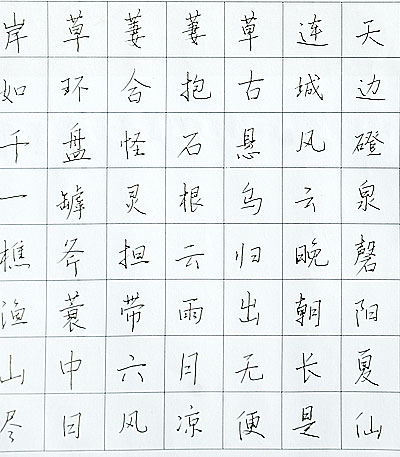 岸草萋萋草连天
如环合抱古城边
千盘怪石悬风磴
一罅灵根乌云泉
樵斧担云归晚磬
渔蓑带雨出朝阳
山中六月无长夏
尽日风凉便是仙